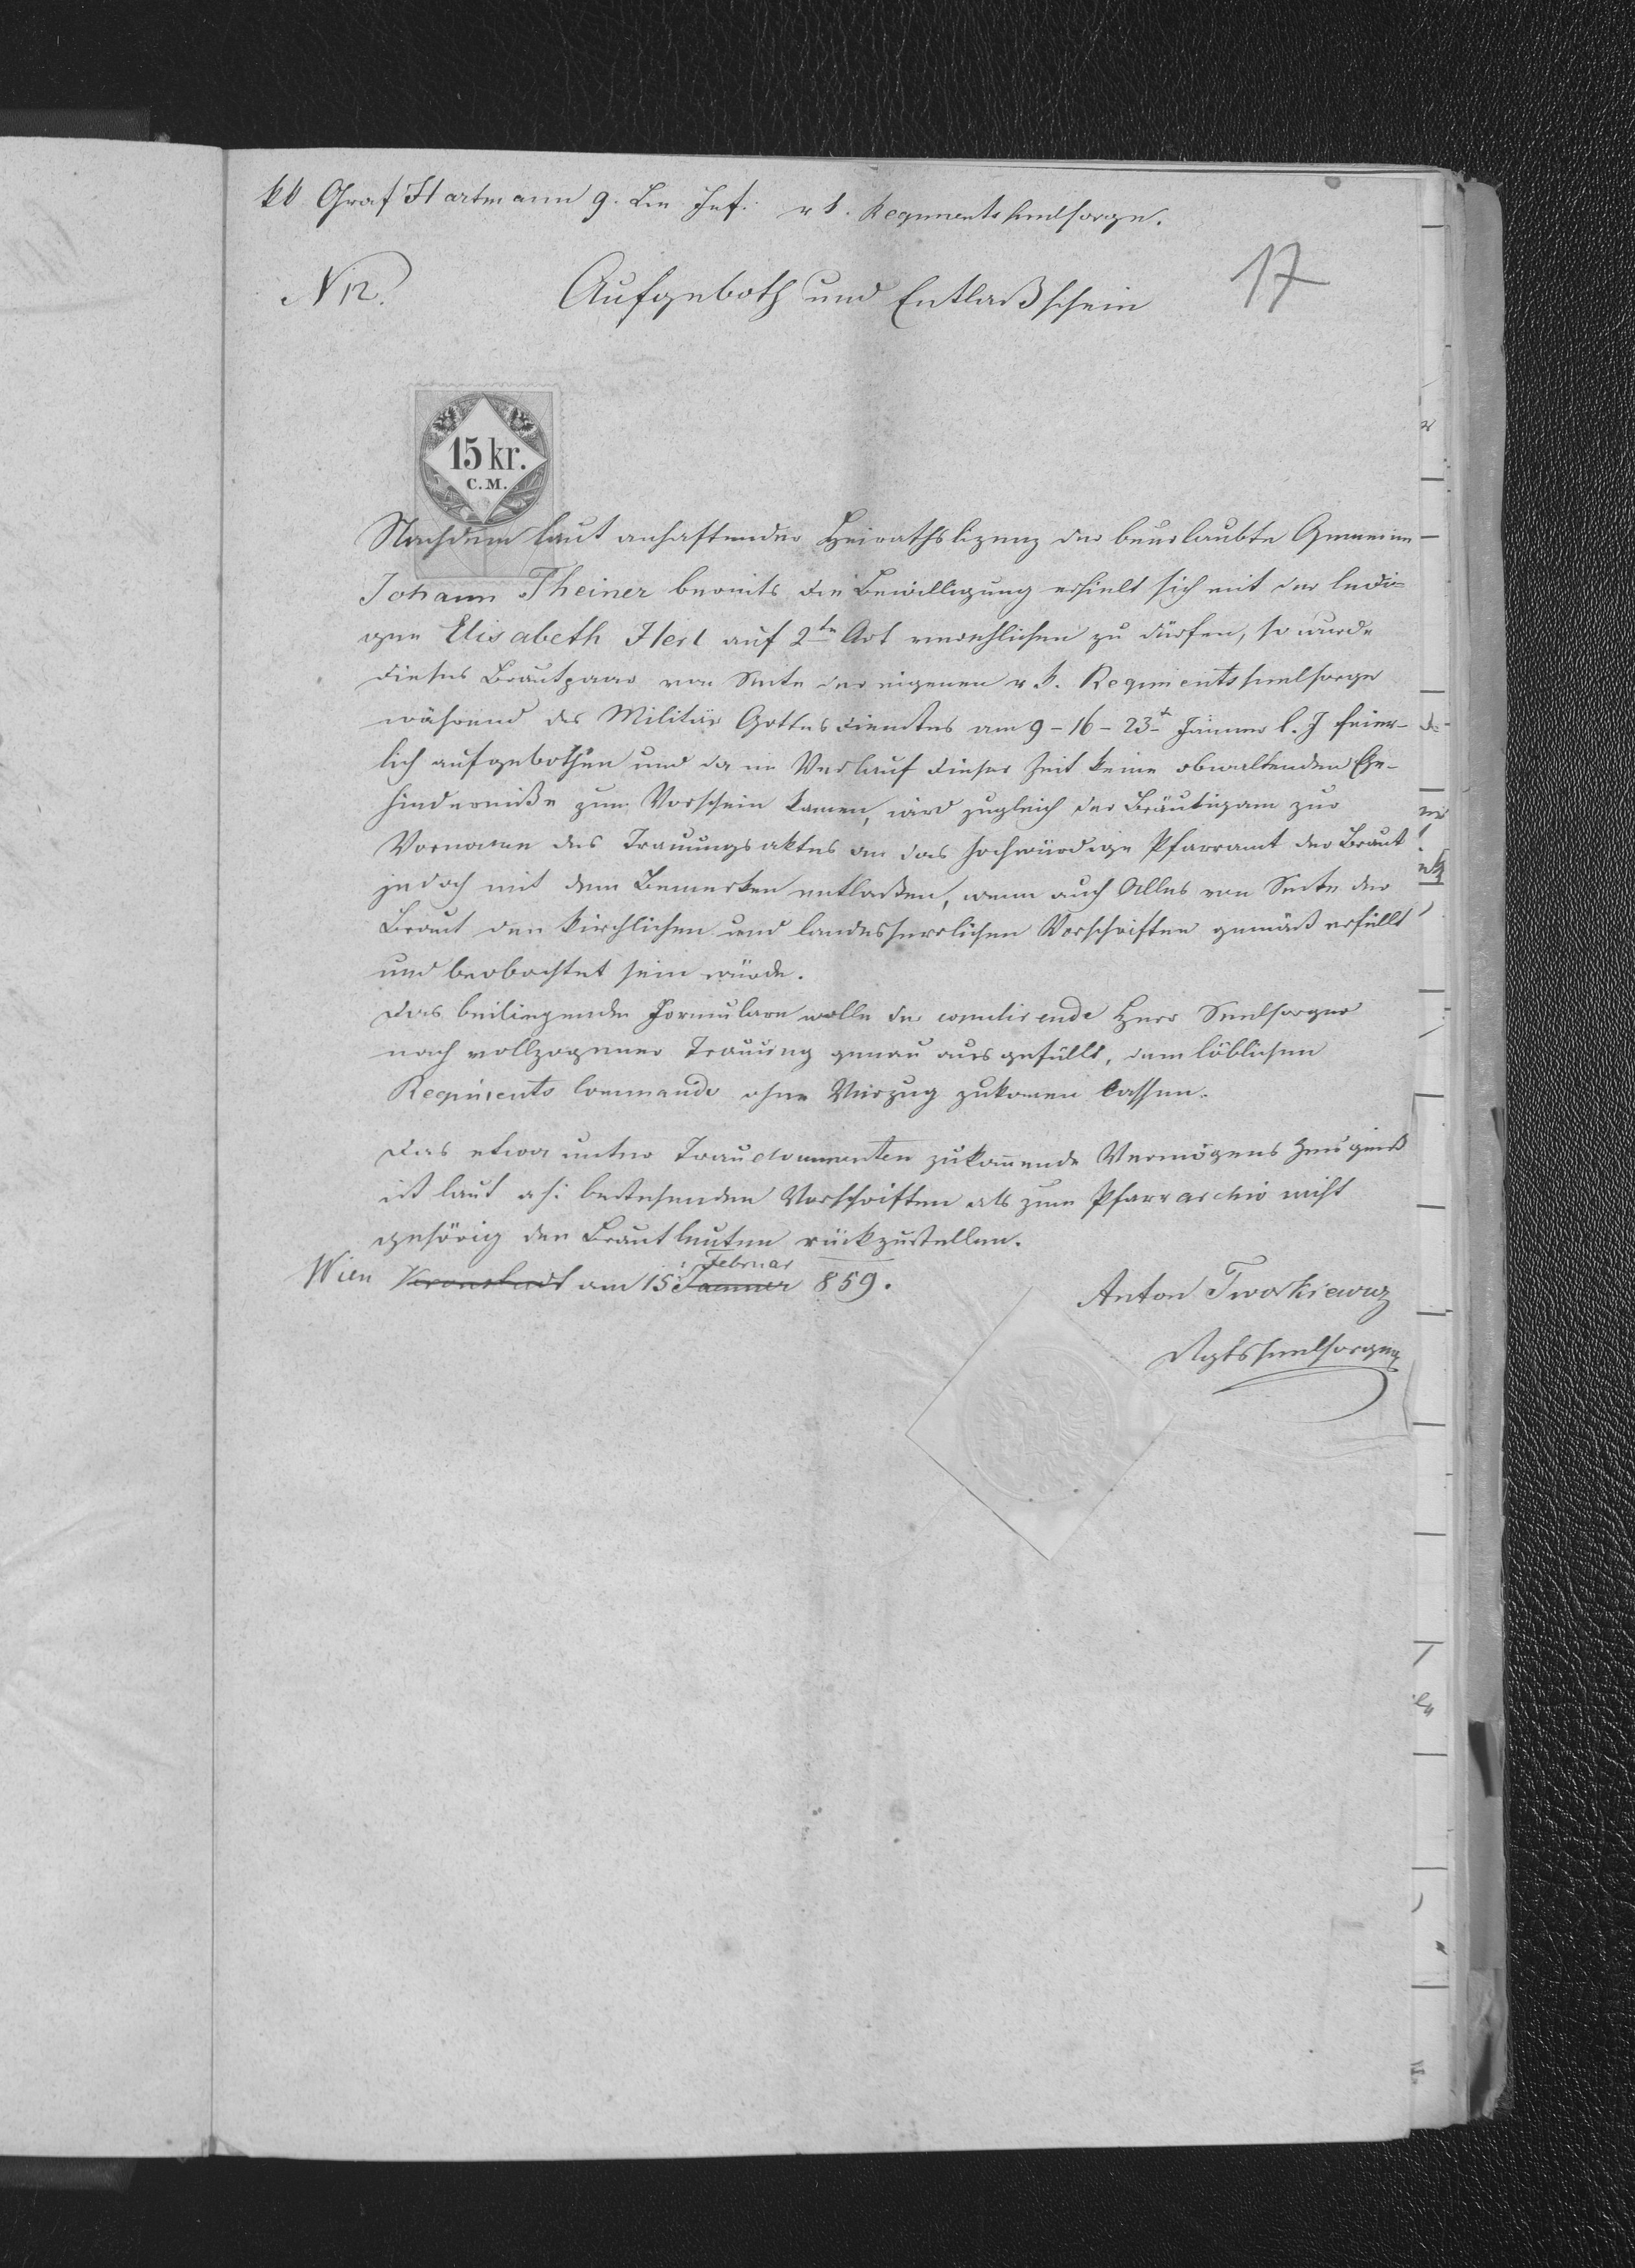 kk Graf Hartmann 9. Lin. Inf. r. k. Regiments Seelsorge.
Nr. Aufgeboth und Entlaßschein 17
15 kr.
C.M.
Nachdem laut anhaftender Heirathslizenz der beurlaubte Gemeine
Johann Theiner bereits die Bewilligung erhielt sich mit der ledi-
gen Elisabeth Herl auf 2te Art verehlichen zu dürfen, so wurde
dieses Brautpaar von Seite der eigenen r. k. Regimentsseelsorge
während des Militär Gottesdienstes am 9 - 16 - 23t Jänner l. J feier-
lich aufgebothen und da im Verlauf dieser Zeit keine obwaltenden Ehe-
hinderniße zum Vorschein kamen, wird zugleich der Bräutigam zur
Vorname des Trauungsaktes an das hochwürdige Pfarramt der Braut
jedoch mit dem Bemerken entlaßen, wenn auch Alles von Seite der
Braut den kirchlichen und landesherrlichen Vorschriften gemäß erfüllt
und beobachtet sein würde.
Das beiliegende Formulare wolle der copulirende Herr Seelsorger
nach vollzogener Trauung genau ausgefüllt, dem löblichen
Regiments Commando ohne Verzug zukomen lassen.
Das etwa unter Traudocumenten zukomende Vermögens Zeugniß
ist laut ah: bestehenden Vorschriften als zum Pfarrarchiv nicht
gehörig den Brautleuten rückzustellen.
Februar
Wien Kronstadt am 15. Jaenner 859.
Anton Tworkiewicz
Rgtsseelsorger